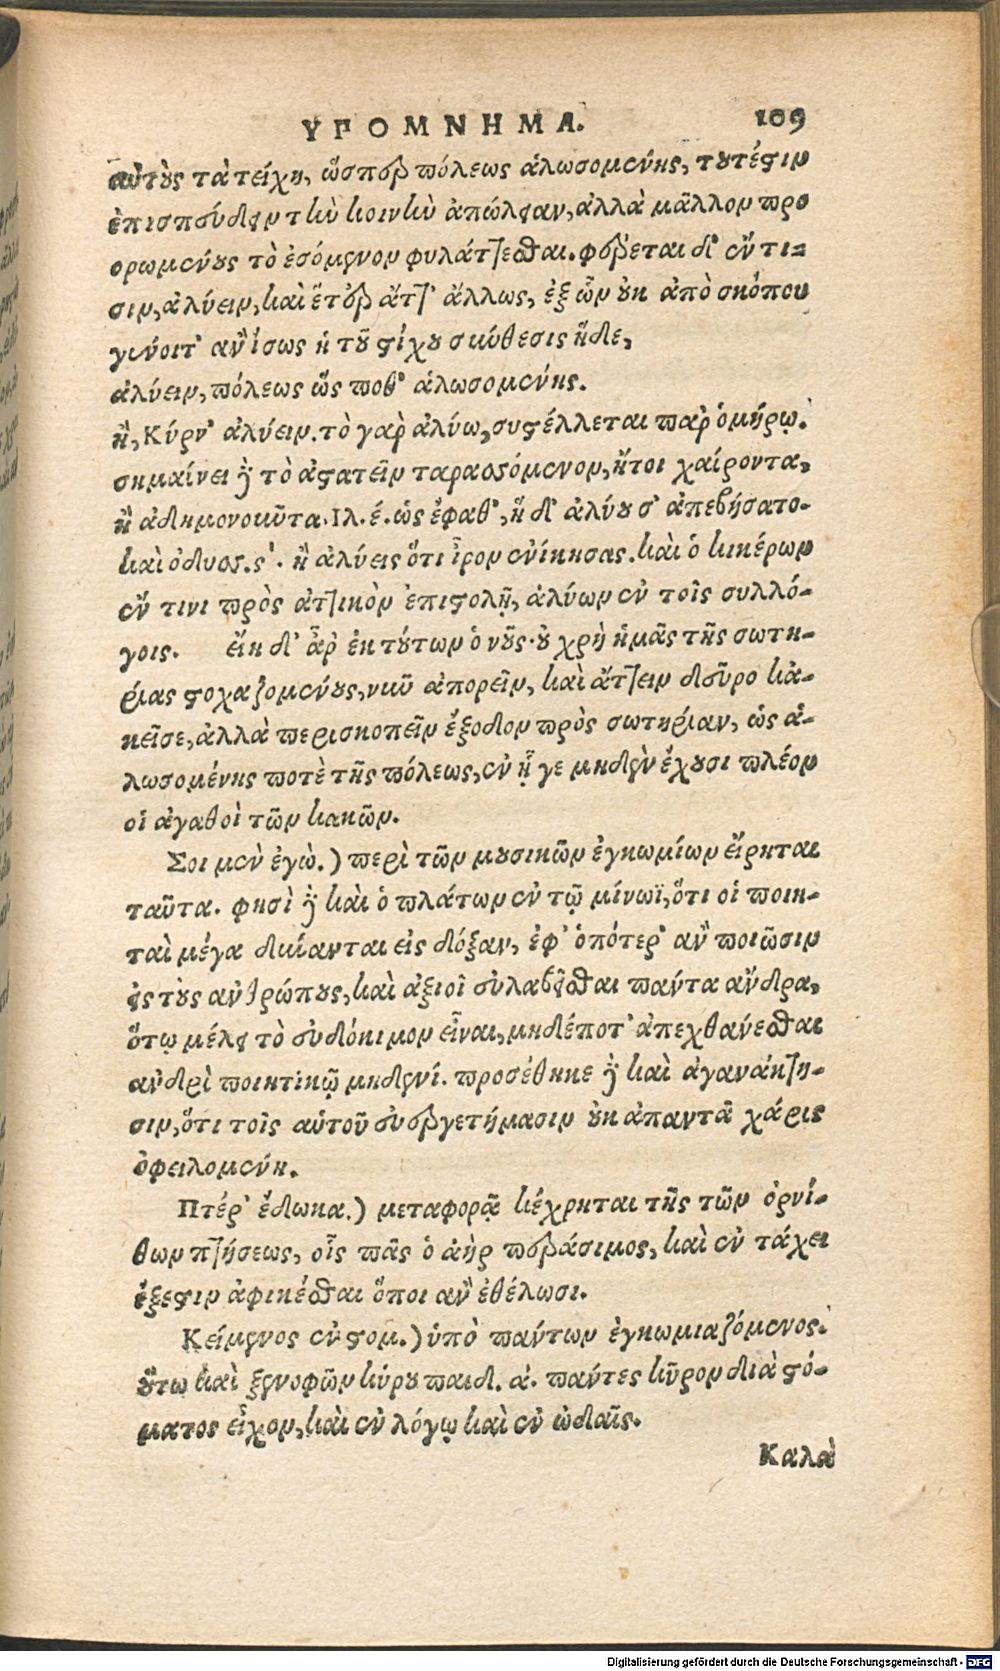 ΥΠΟΜΝΗΜΑ. 109
αὐτοὺς τὰ τείχη, ὥσπερ πόλεως ἁλωσομένης, τουτέστιν
ἐπισπεύδειν τὴν κοινὴν ἀπώλειαν, ἀλλὰ μᾶλλον προ
ορωμένους τὸ ἐσόμενον φυλάττεσθαι. φέρεται δ' ἔν τι-
σιν, ἀλύειν, καὶ ἕτερ' ἄττ' ἄλλως, ἐξ ὧν οὐκ ἀπὸ σκόπου
γένοιτ' ἂν ἴσως ἡ τοῦ στίχου σύνθεσις ἥδε,
ἀλύειν, πόλεως ὥς ποθ' ἁλωσομένης.
ἢ, Κύρν' ἀλύειν. τὸ γὰρ ἀλύω, συστέλλεται παρ' ὁμήρῳ.
σημαίνει δὲ τὸ ἀστατεῖν ταρασσόμενον, ἤτοι χαίροντα,
ἢ ἀδημονοῦντα. Ιλ. έ. ὡς ἔφαθ', ἡ δ' ἀλύουσ' ἀπεβήσατο.
καὶ ὀδυσσ. σ'. ἢ ἀλύεις ὅτι ἶρον ἐνίκησας. καὶ ὁ κικέρων
ἔν τινι πρὸς ἀττικὸν ἐπιστολῇ, ἀλύων ἐν τοῖς συλλό-
γοις. εἴη δ' ἂρ ἐκ τούτων ὁ νοῦς. οὐ χρὴ ἡμᾶς τῆς σωτη-
ρίας στοχαζομένους, νῦν ἀπορεῖν, καὶ ἄττειν δεῦρο κἀ-
κεῖσε, ἀλλὰ περισκοπεῖν ἔξοδον πρὸς σωτηρίαν, ὡς ἁ-
λωσομένης ποτὲ τῆς πόλεως, ἐν ᾗ γε μηδὲν ἔχουσι πλέον
οἱ ἀγαθοὶ τῶν κακῶν.
Σοι μὲν ἐγὼ.) περὶ τῶν μουσικῶν ἐγκωμίων εἴρηται
ταῦτα. φησὶ δὲ καὶ ὁ πλάτων ἐν τῷ μίνωϊ, ὅτι οἱ ποιη-
ταὶ μέγα δύνανται εἰς δόξαν, ἐφ' ὁπότερ' ἂν ποιῶσιν
εἰς τοὺς ἀνθρώπους, καὶ ἀξιοῖ εὐλαβεῖσθαι πάντα ἄνδρα,
ὅτῳ μέλει τὸ εὐδόκιμον εἶναι, μηδέποτ' ἀπεχθάνεσθαι
ἀνδρὶ ποιητικῷ μηδενί. προσέθηκε δὲ καὶ ἀγανάκτη-
σιν, ὅτι τοῖς αὐτοῦ εὐεργετήμασιν οὐκ ἀπαντᾶ χάρις
ὀφειλομένη.
Πτέρ' ἔδωκα.) μεταφορᾷ κέχρηται τῆς τῶν ὀρνί-
θων πτήσεως, οἷς πᾶς ὁ ἀὴρ περάσιμος, καὶ ἐν τάχει
ἔξεστιν ἀφικέσθαι ὅποι ἂν ἐθέλωσι.
Κείμενος ἐν στομ.) ὑπὸ πάντων ἐγκωμιαζόμενος.
οὕτω καὶ ξενοφῶν κύρου παιδ. ά. πάντες κῦρον διὰ στό-
ματος εἶχον, καὶ ἐν λόγῳ καὶ ἐν ᾠδαῖς.
Καλὰ
Digitalisierung gefördert durch die Deutsche Forschungsgemeinschaft - DFG